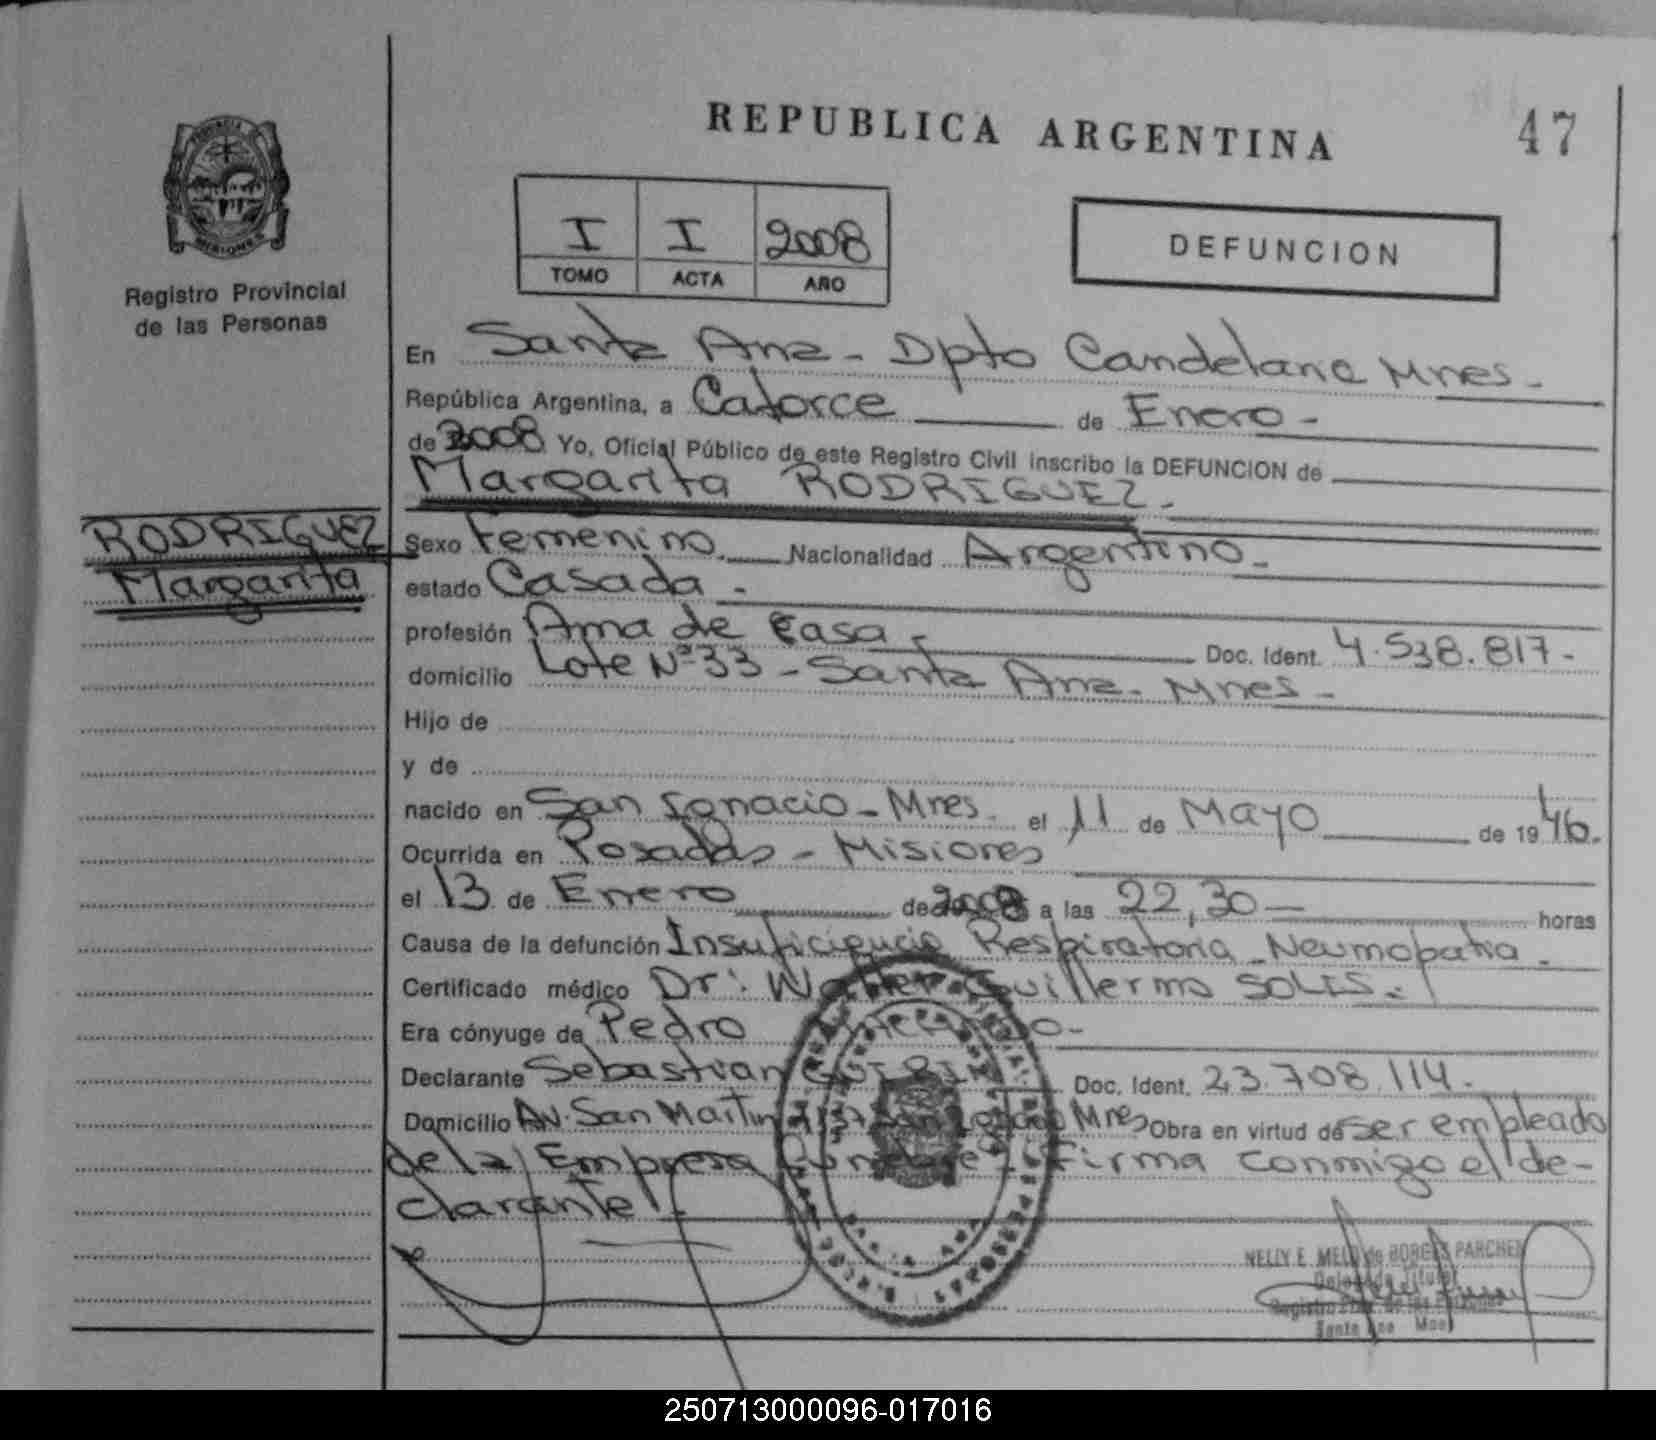 REPUBLICA ARGENTINA
47
PROVINCIA DE
MISIONES
Registro Provincial
de las Personas
I I 2008
TOMO ACTA AÑO
DEFUNCION
En Santa Ana - Dpto Candelaria Mnes.-
República Argentina, a Catorce de Enero -
de 2008 Yo, Oficial Público de este Registro Civil inscribo la DEFUNCION de
Margarita RODRIGUEZ.-
RODRIGUEZ
Margarita
Sexo Femenino. Nacionalidad Argentino.-
estado Casada.-
profesión Ama de Casa.- Doc. Ident. 4.538.817.-
domicilio Lote Nº 33 - Santa Ana - Mnes.-
Hijo de
y de
nacido en San Ignacio - Mnes. el 11 de Mayo de 1946.
Ocurrida en Posadas - Misiones
el 13 de Enero de 2008 a las 22,30 - horas
Causa de la defunción Insuficiencia Respiratoria - Neumopatia.-
Certificado médico Dr: Walter Guillermo SOLIS.-
Era cónyuge de Pedro
Declarante Sebastian Doc. Ident. 23.708.114.-
Domicilio Av. San Martin Mnes Obra en virtud de ser empleado
de la Empresa Firma conmigo el de-
clarante.-
NELLY E. MELO de BORGES PARCHEN
Delegada Titular
Registro Prov. de las Personas
Santa Ana
250713000096-017016